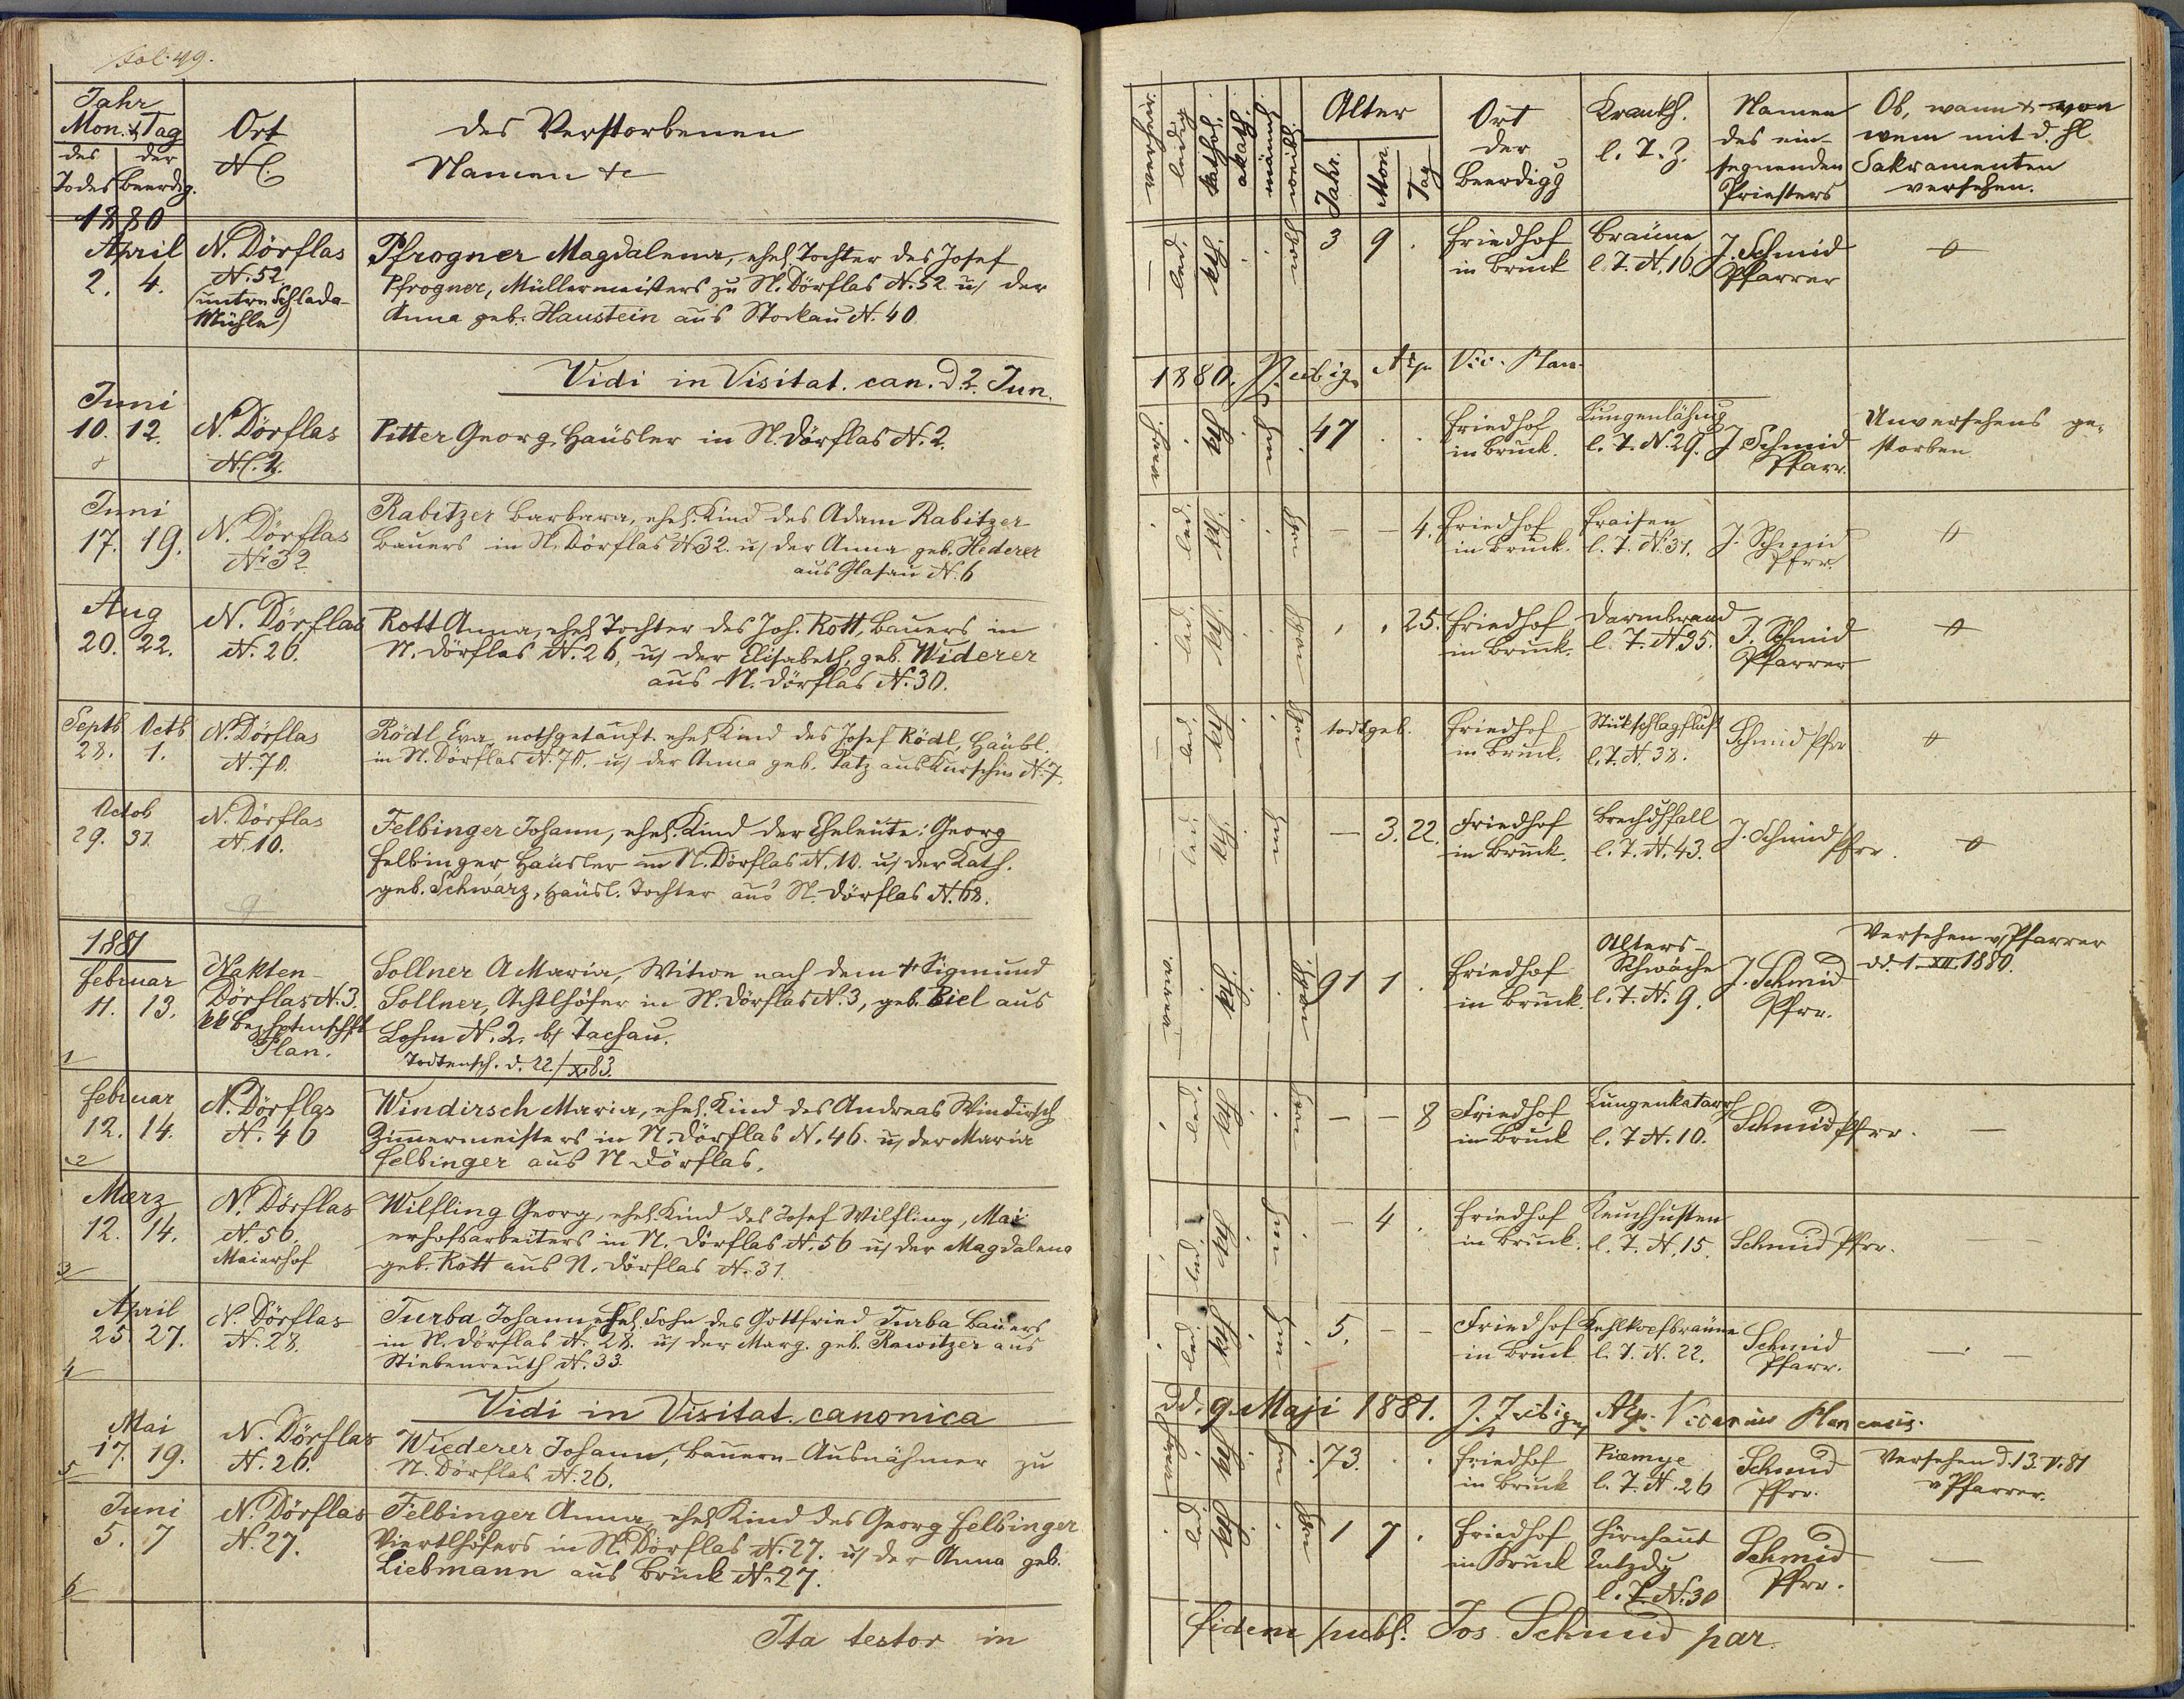 Fol: 49.
Jahr
Mon. & Tag
des der
Todes Beerdig.
Ort
NC.
des Verstorbenen
Namen &c
1880
April
2. 4.
N. Dörflas
N. 52.
(untre Schlada-
Mühle)
Pfrogner Magdalena, ehel. Tochter des Josef
Pfrogner, Müllermeisters zu N. Dörflas N. 52 u/ der
Anna geb. Haustein aus Stockau N. 40
Vidi in Visitat. can. d. 2. Jun.
Juni
10. 12.
N. Dörflas
N.C. 2.
Pitter Georg, Häusler in N. Dörflas N. 2.
Juni
17. 19.
N. Dörflas
N. 32
Rabitzer Barbara, ehel. Kind des Adam Rabitzer
Bauers in N. Dörflas N 32. u/ der Anna geb. Hederer
aus Glasau N. 6
Aug
20. 22.
N. Dörflas
N. 26.
Rott Anna, ehel. Tochter des Joh. Rott, Bauers in
N. Dörflas N. 26, u/ der Elisabeth, geb. Widerer
aus N. Dörflas N. 30.
Septb Octb
28. 1.
N. Dörflas
N. 70.
Rödl Eva nothgetauft. ehel. Kind des Josef Rödl, Häusl.
in N. Dörflas N. 70. u/ der Anna geb. Patz aus Kurschin N. 7.
Octob
29. 31.
N. Dörflas
N. 10.
Felbinger Johann, ehel. Kind der Eheleute: Georg
Felbinger Häusler in N. Dörflas N. 10. u/ der Kath.
geb. Schwarz, Häusl. Tochter aus N. Dörflas N. 68.
1881
Februar
11. 13.
1
Nakten-
Dörflas N. 3.
kk Bezhptmschft
Plan.
Sollner A Maria, Witwe nach dem + Sigmund
Sollner, Achtlhöfer in N. Dörflas N. 3, geb. Biel aus
Lohm N. 2. b/ Tachau.
Todtensch. d. 22/XI 83.
Februar
12. 14.
2
N. Dörflas
N. 46
Windirsch Maria, ehel. Kind des Andreas Windirsch
Zimmermeisters in N. Dörflas N. 46. u/ der Maria
Felbinger aus N Dörflas.
Maerz
12. 14.
3
N. Dörflas
N. 56.
Maierhof
Wilfling Georg, ehel. Kind des Josef Wilfling, Mai
erhofsarbeiters in N. Dörflas N. 56 u/ der Magdalena
geb. Rott aus N. Dörflas N. 31.
April
25. 27.
4
N. Dörflas
N. 28.
Turba Johann, ehel. Sohn des Gottfried Turba Bauers
in N. Dörflas N. 28. u/ der Marg. geb. Rawitzer aus
Stiebenreuth N. 33.
Vidi in Visitat. canonica
Mai
17. 19.
5
N. Dörflas
N. 26.
Wiederer Johann, Bauern-Ausnähmer zu
N. Dörflas N. 26.
Juni
5. 7
6
N. Dörflas
N. 27.
Felbinger Anna, ehel. Kind des Georg Felbinger
Viertlhöfers in N. Dörflas N. 27. u/ der Anna geb.
Liebmann aus Bruck N. 27.
Ita testor in
verheir.
ledig
kathol.
akath.
männl.
weibl.
Alter
Jahr. Mon. Tag
Ort
der
Beerdigg
Krankh.
l. T. Z.
Namen
des ein-
segnenden
Priesters
Ob, wann & von
wem mit d. hl
Sakramenten
versehen.
led. kth. 3 9 .
Friedhof
in Bruck
Bräune
l. T. N. 16
J. Schmid
Pfarrer
1880. Vic. Plan.
kth 47 . .
Friedhof
in Bruck.
Lungenlähmg
l. T. N. 29.
J Schmid
Pfarr.
Unversehens ge-
storben.
led. kth. — — 4.
Friedhof
in Bruck.
Fraisen
l. T. N. 31.
J. Schmid
Pfrr.
led. kth. 25.
Friedhof
in Bruck.
Darmbrand
l. T. N 35.
J. Schmid
Pfarrer
led kth todtgeb.
Friedhof
in Bruck.
Stickschlagfluß
l. T. N. 38.
Schmid Pfrr
led. kth. — 3. 22.
Friedhof
in Bruck.
Brechdhfall
l. T. N. 43.
J. Schmid Pfrr.
kth 91 1 .
Friedhof
in Bruck.
Alters-
schwäche
l. T. N. 9.
J. Schmid
Pfrr.
Versehen v/ Pfarrer
dd. 1. XII. 1880.
led. kth — — 8
Friedhof
in Bruck
Lungenkatarrh
l. T N. 10.
Schmid Pfrr. —
led. kth — 4 .
Friedhof
in Bruck.
Keuchhusten
l. T. N. 15.
Schmid Pfrr.
led kth 5. — —
Friedhof
in Bruck
Kehlkopfbräune
l. T. N. 22.
Schmid
Pfarr.
dd. 9. Maji 1881. Vicarius Planensis.
kth 73. . .
Friedhof
in Bruck
Piemye
l. T. N. 26
Schmid
Pfrr.
Versehen d. 13. V. 81
v Pfarrer.
led kth 1 7 .
Friedhof
in Bruck
Hirnhaut
Entzdg
l. T. N. 30
Schmid
Pfrr. —
fidem publ. Jos. Schmid par.